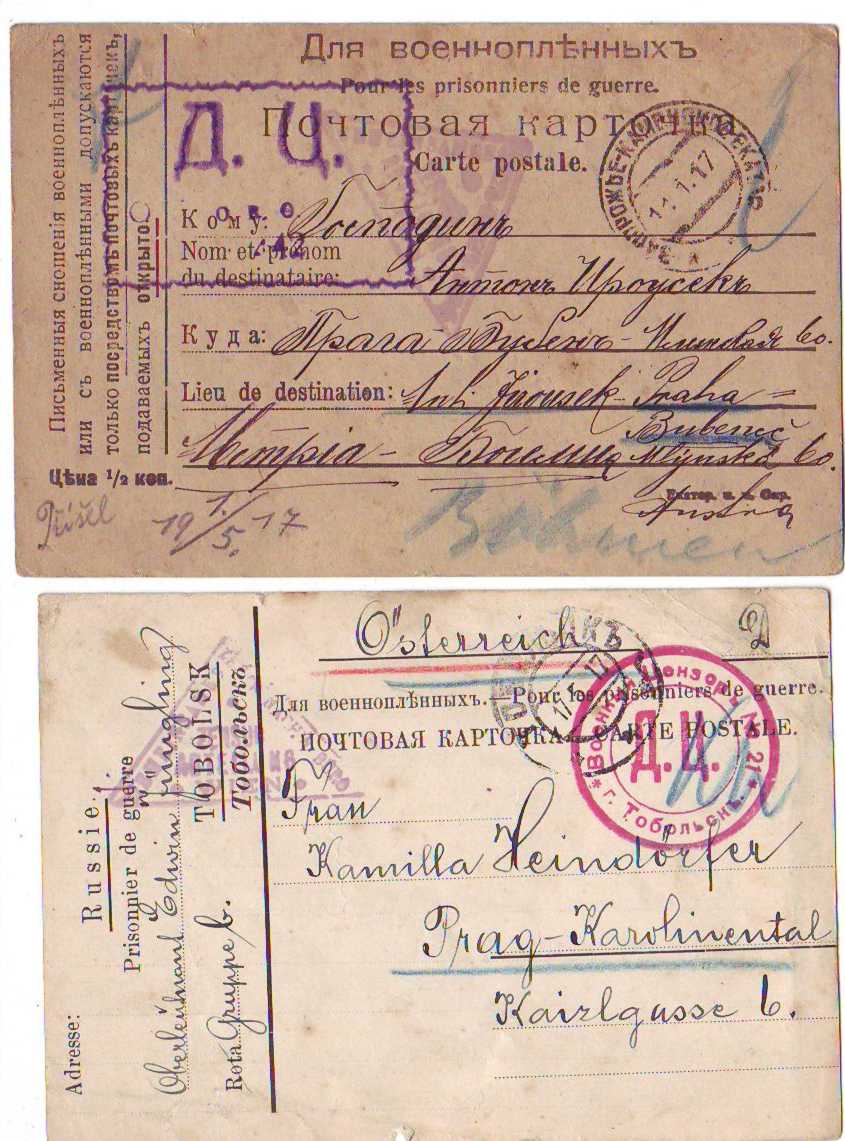 Письменныя сношенія военноплѣнныхъ
или съ военноплѣнными допускаются
только посредствомъ почтовыхъ карточекъ,
подаваемыхъ открыто.
Цѣна 1/2 коп.
Для военноплѣнныхъ
Pour les prisonniers de guerre.
Почтовая карточка
Carte postale.
Д. Ц.
11.1.17
Кому: Господинъ
Nom et prénom
du destinataire:
Антонъ Ироусекъ
Куда: Прага Бубенъ- 60.
Lieu de destination: Ant. Jirousek- Praha-
Bubeneč
Богемия Mlynská 60.
Austria
Přišel 19 1./5. 17
Böhmen
Österreich
Для военноплѣнныхъ. Pour les prisonniers de guerre.
ПОЧТОВАЯ КАРТОЧКА CARTE POSTALE.
Военный Цензоръ № 21
Д.Ц.
г. Тобольскъ
Frau
Kamilla Heindörfer
Prag-Karolinental
Kaizlgasse 6.
Adresse:
Russie.
Prisonnier de guerre
Oberleutnant Edwin Jüngling
TOBOLSK
Тобольскъ
Rota Gruppe b.